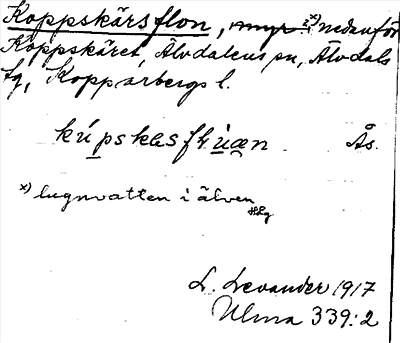 Koppskärsflon, myr x) nedanför
Koppskäret, Älvdalens sn, Älvdals
tg, Kopparbergs l.
kúpskasflùæn Ås.
x) lugnvatten i älven
L. Levander 1917
Ulma 339:2